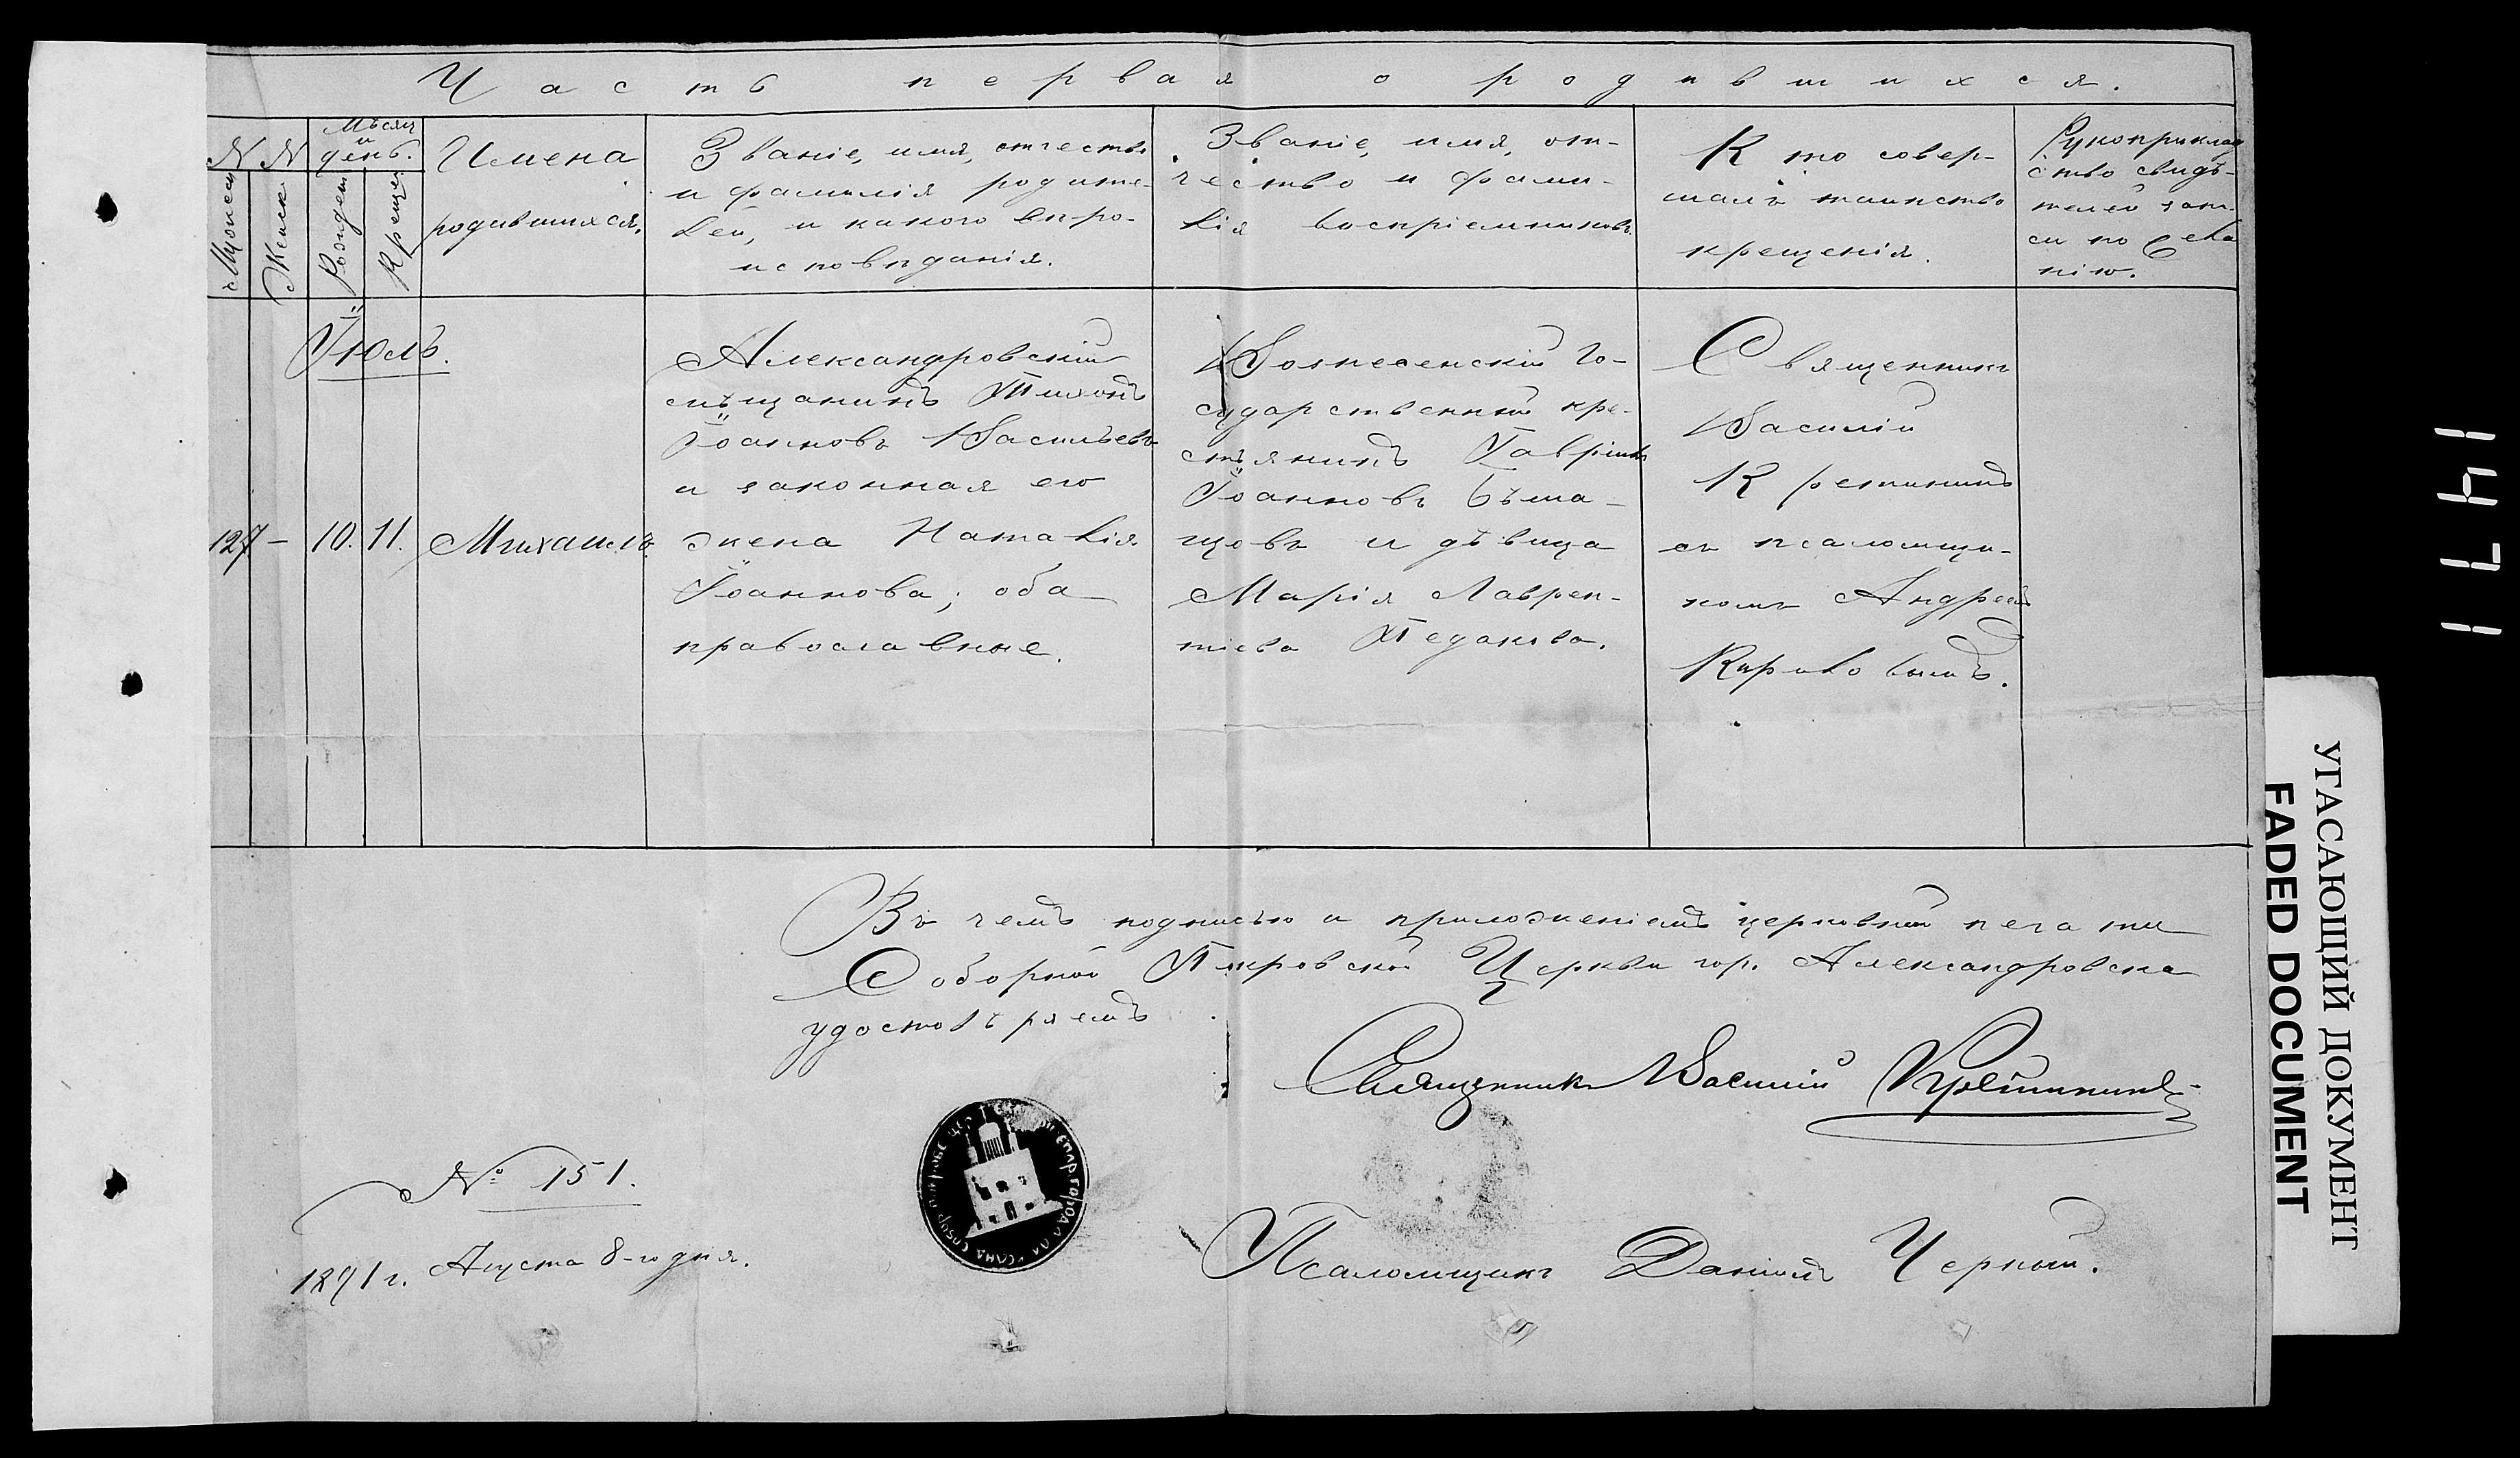 Часть первая о родившихся.
№ №
Мѣсяц
и
день.
Мужеск
Женск
Рожден
Крещен
Имена
родившихся.
Званіе, имя, отчество
и фамилія родите-
лей, и какого вѣро-
исповѣданія.
Званіе, имя, от-
чество и фами-
лія воспріемниковъ.
Кто совер-
шалъ таинство
крещенія.
Рукоприклад
ство свидѣ-
телей запи-
си по жела
нію.
Іюль.
127 – 10. 11. Михаилъ
Александровскій
мѣщанинъ Тихонъ
Іоанновъ Васильевъ
и законная его
жена Наталія
Іоаннова; оба
православные.
Вознесенскій Го-
сударственный кре-
стьянинъ Гавріилъ
Іоанновъ
и дѣвица
Марія Лаврен-
тіева
Священникъ
Василій
Кретининъ
съ псаломщи-
комъ Андреемъ
Кириловымъ.
Въ чемъ подписью и приложеніемъ церковной печати
Соборной Покровской Церкви гор. Александровска
удостовѣряемъ
Священникъ Василій Кретининъ
№ 151.
1891 г. Августа 8-го дня.
Псаломщикъ Даніилъ Черный.
1471
УГАСАЮЩИЙ ДОКУМЕНТ
FADED DOCUMENT